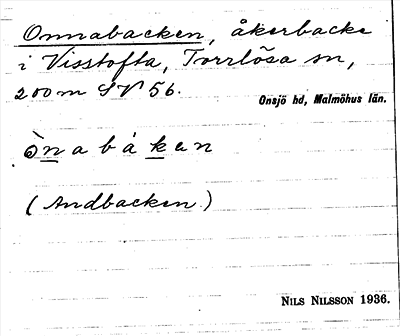 Onnabacken, åkerbacke
i Visstofta, Torrlösa sn,
200 m SV 56.
Onsjö hd, Malmöhus län.
ònabáken
(Andbacken)
NILS NILSSON 1936.